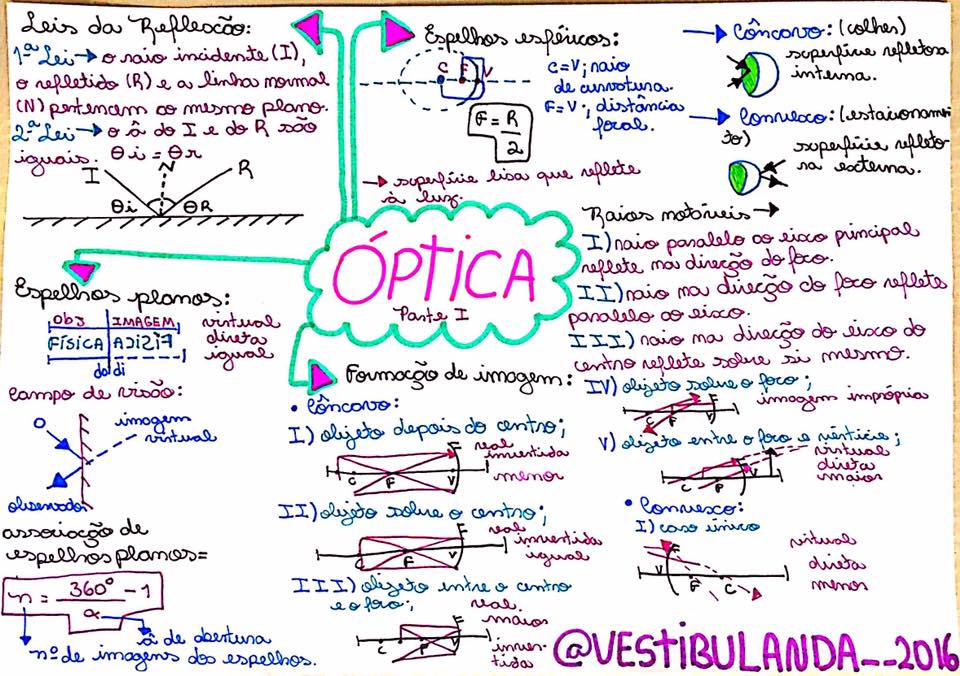 Leis da Reflexão:
1ª Lei → o raio incidente (I),
o refletido (R) e a linha normal
(N) pertencem ao mesmo plano.
2ª Lei → o â do I e do R são
iguais. θi = θr
I N R
θi θR
Espelhos esféricos:
C F V
C=V; raio
de curvatura.
F=V; distância
focal.
F = R
2
→ superfície lisa que reflete
a luz.
→ Côncavo: (colher)
superfície refletora
interna.
→ Convexo: (estacionamen
to)
superfície refleto
ra externa.
ÓPTICA
Parte I
Raios notáveis →
I) raio paralelo ao eixo principal
reflete na direção do foco.
II) raio na direção do foco reflete
paralelo ao eixo.
III) raio na direção do eixo do
centro reflete sobre si mesmo.
Espelhos planos:
OBJ IMAGEM
FÍSICA ADIZÌF
do di
virtual
direta
igual
Campo de visão:
O
imagem
virtual
observador
associação de
espelhos planos=
n = 360° - 1
α
â de abertura
nº de imagens dos espelhos.
Formação de imagem:
• Côncavo:
I) objeto depois do centro;
C F V
real
invertida
menor
II) objeto sobre o centro;
C F V
real
invertida
igual
III) objeto entre o centro
e o foco;
C F V
real.
maior
inver-
tida
IV) objeto sobre o foco;
imagem imprópria
V) objeto entre o foco e vértice;
C F V
virtual
direta
maior
• Convexo:
I) caso único
V F C
virtual
direta
menor
@VESTIBULANDA__2016